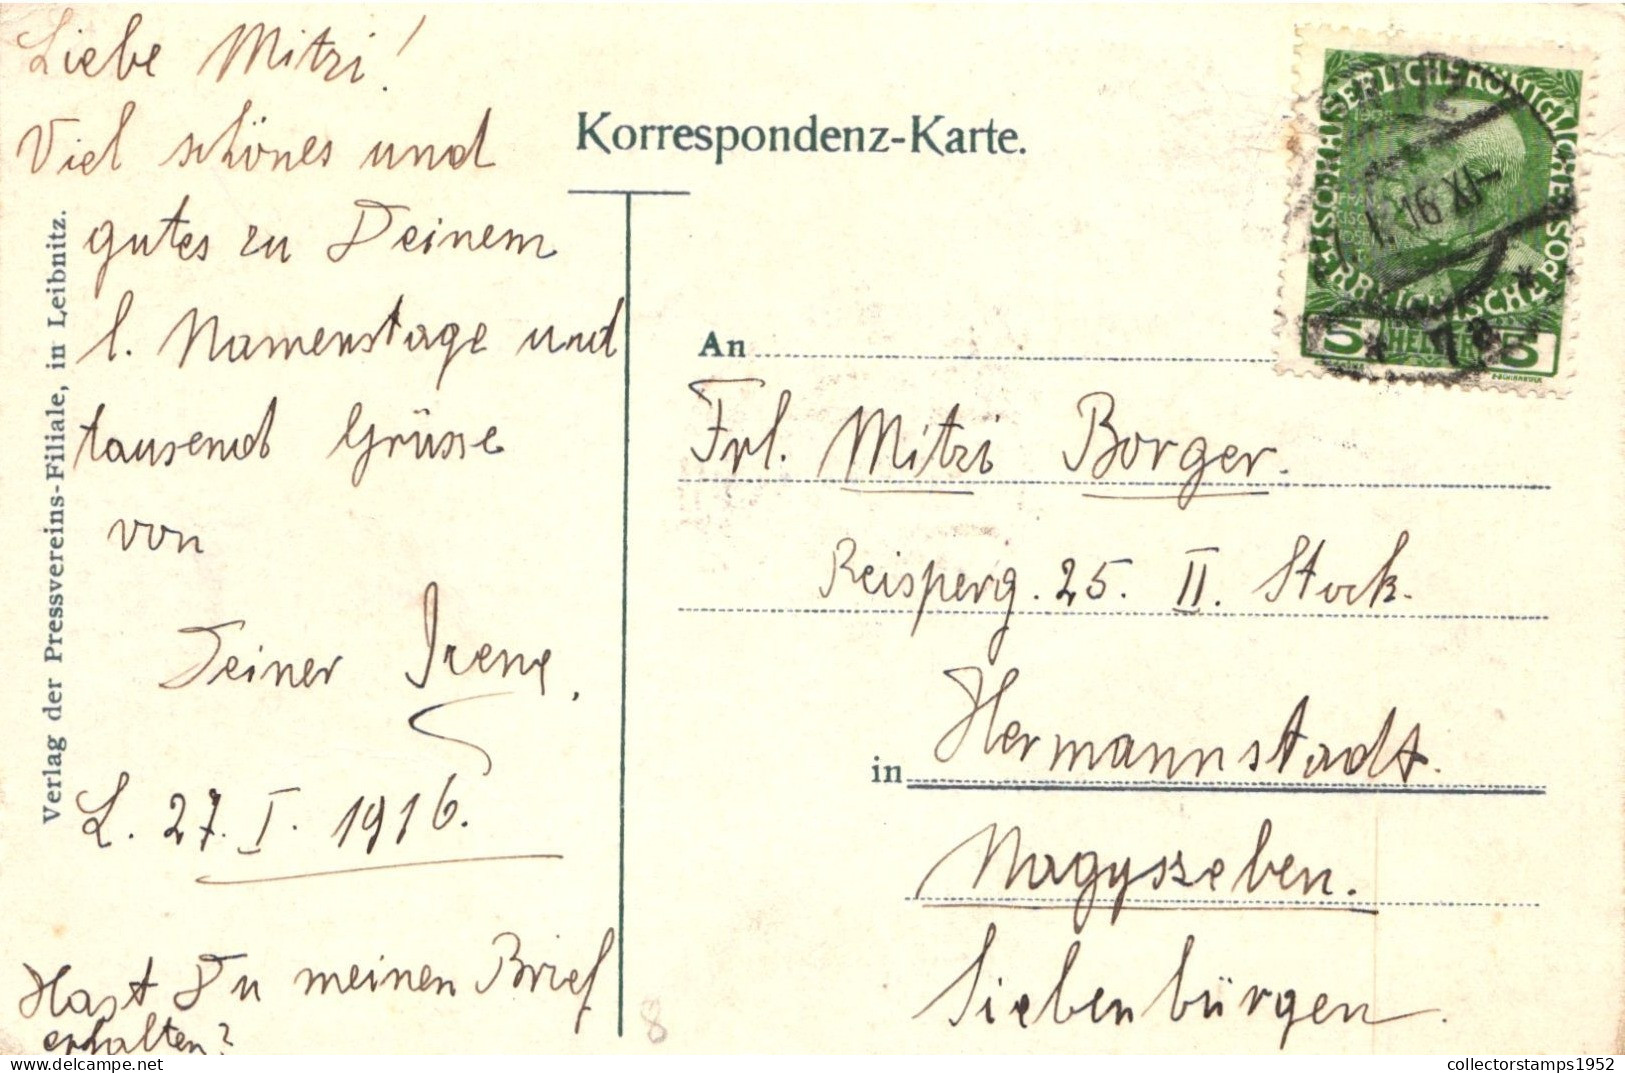 Liebe Mitzi!
Viel schönes und
gutes zu Deinem
l. Namenstage und
tausend Grüsse
von
Deiner Irene.
L. 27. I. 1916.
Hast Du meinen Brief
erhalten?
Verlag der Pressvereins-Filiale, in Leibnitz.
Korrespondenz-Karte.
An
Frl. Mitzi Borger.
Reisperg. 25. II. Stock.
in Hermannstadt.
Nagyszeben.
Siebenbürgen.
KAISERLICHE KÖNIGLICHE
ÖSTERREICHISCHE POST
1908
5 HELLER 5
8
collectorstamps1952